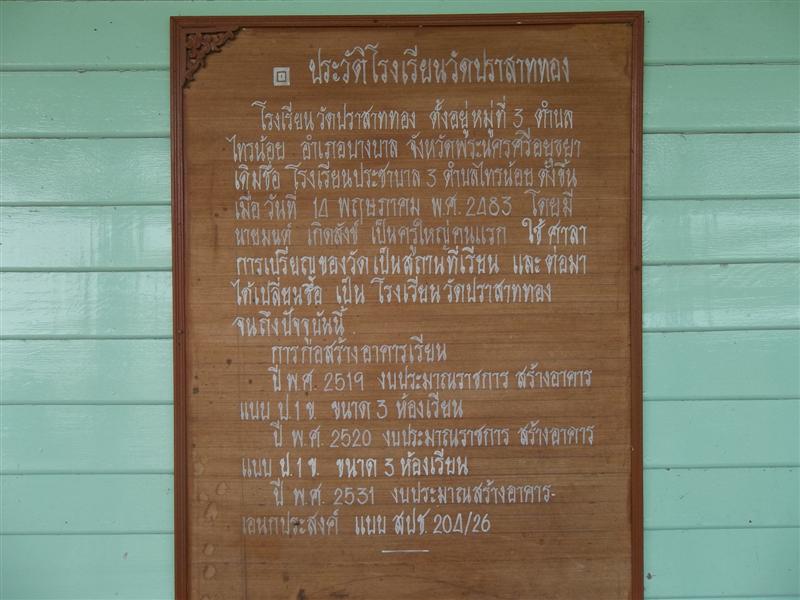 ประวัติโรงเรียนวัดปราสาททอง
โรงเรียนวัดปราสาททอง ตั้งอยู่หมู่ที่ 3 ตำบล
ไทรน้อย อำเภอบางบาล จังหวัดพระนครศรีอยุธยา
เดิมชื่อ โรงเรียนประชาบาล 3 ตำบลไทรน้อย ตั้งขึ้น
เมื่อ วันที่ 14 พฤษภาคม พ.ศ. 2483 โดยมี
นายมนต์ เกิดสังข์ เป็นครูใหญ่คนแรก ใช้ศาลา
การเปรียญของวัดเป็นสถานที่เรียน และต่อมา
ได้เปลี่ยนชื่อ เป็น โรงเรียนวัดปราสาททอง
จนถึงปัจจุบันนี้
การก่อสร้างอาคารเรียน
ปี พ.ศ. 2519 งบประมาณราชการ สร้างอาคาร
แบบ ป.1 ข. ขนาด 3 ห้องเรียน
ปี พ.ศ. 2520 งบประมาณราชการ สร้างอาคาร
แบบ ป.1 ข. ขนาด 3 ห้องเรียน
ปี พ.ศ. 2531 งบประมาณสร้างอาคาร-
เอนกประสงค์ แบบ สปช. 204/26